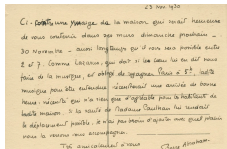 23 Nov 1930
Ci- une de la maison qui serait heureuse
de vous contenir dans ses murs dimanche prochain -
30 Novembre - aussi longtemps qu'il vous sera possible entre
2 et 7. Comme Lazarus, qui doit si l'eau lui en dit nous
faire de la musique, est obligé de regagner Paris à 5h,
musique pour être entendue nécessiterait une arrivée de bonne
heure; nécessité qui n'a rien que d'agréable pour les habitants de
maison. Si la santé de Madame Paulhan lui rendait
le déplacement possible, il n'est pas besoin d'ajouter avec quel plaisir
nous la verrions vous accompagner.
Très amicalement à vous
Pierre Abraham.